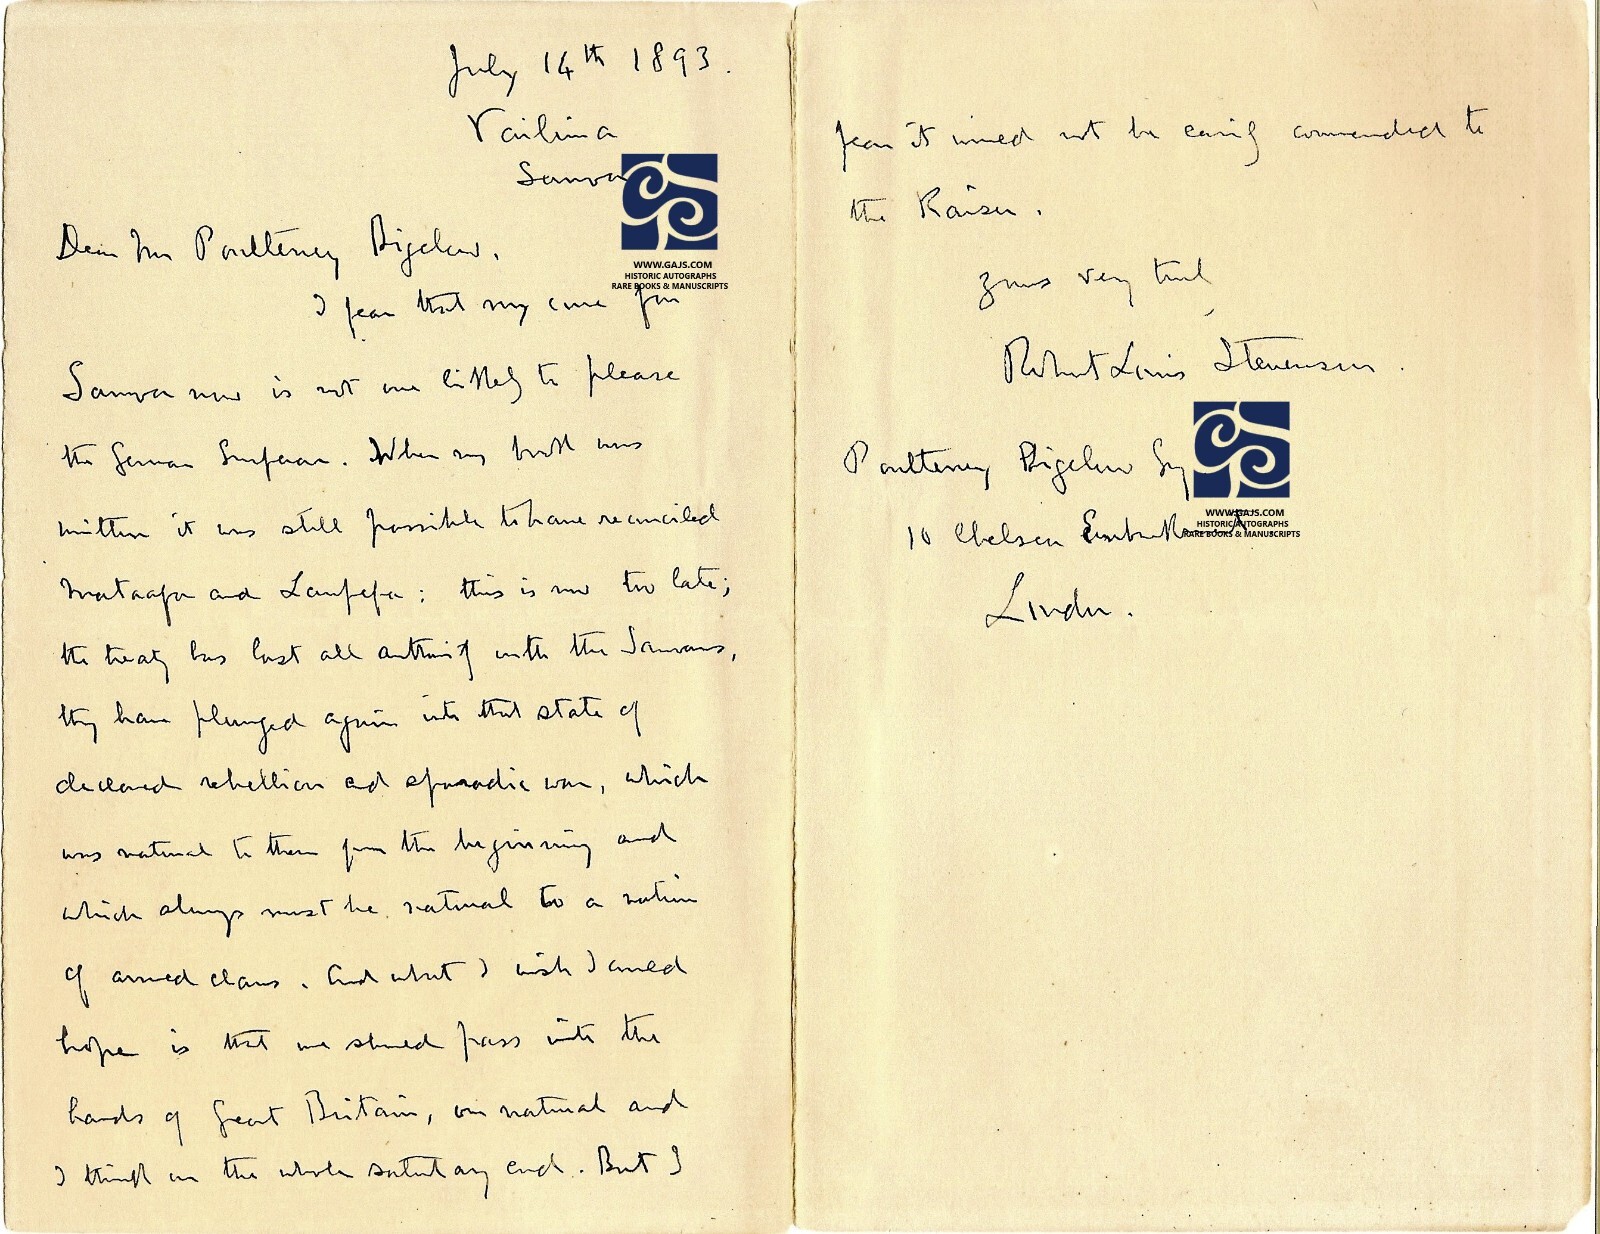 July 14th 1893.
Vailima
Samoa
Dear Mr Poulteney Bigelow,
I fear that my cure for
Samoa now is not one likely to please
the German Emperor. When my book was
written it was still possible to have reconciled
Mataafa and Laupepa; this is now too late;
the treaty has lost all authority with the Samoans,
they have plunged again into that state of
declared rebellion and sporadic war, which
was natural to them from the beginning and
which always must be natural to a nation
of armed clans. And what I wish I could
hope is that we should pass into the
hands of Great Britain, our natural and
I think on the whole salutary end. But I
fear it would not be easily commended to
the Kaiser.
Yours very truly
Robert Louis Stevenson.
Poulteney Bigelow Esq
10 Chelsea Embankment
London.
WWW.GAJS.COM
HISTORIC AUTOGRAPHS
RARE BOOKS & MANUSCRIPTS
WWW.GAJS.COM
HISTORIC AUTOGRAPHS
RARE BOOKS & MANUSCRIPTS